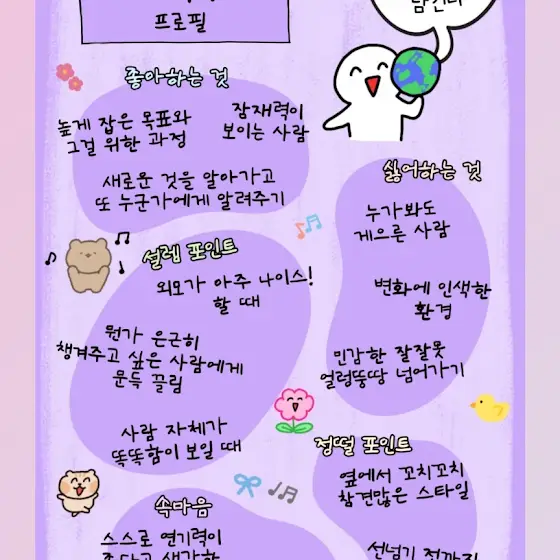 프로필
좋아하는 것
높게 잡은 목표와
그걸 위한 과정
잠재력이
보이는 사람
새로운 것을 알아가고
또 누군가에게 알려주기
싫어하는 것
누가봐도
게으른 사람
변화에 인색한
환경
민감한 잘잘못
얼렁뚱땅 넘어가기
설렘 포인트
외모가 아주 나이스!
할 때
뭔가 은근히
챙겨주고 싶은 사람에게
문득 끌림
사람 자체가
똑똑함이 보일 때
정떨 포인트
옆에서 꼬치꼬치
참견많은 스타일
선넘기 전까진
속마음
스스로 연기력이